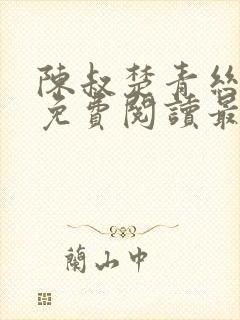 陳叔楚青絲
免費閱讀最
蘭山中